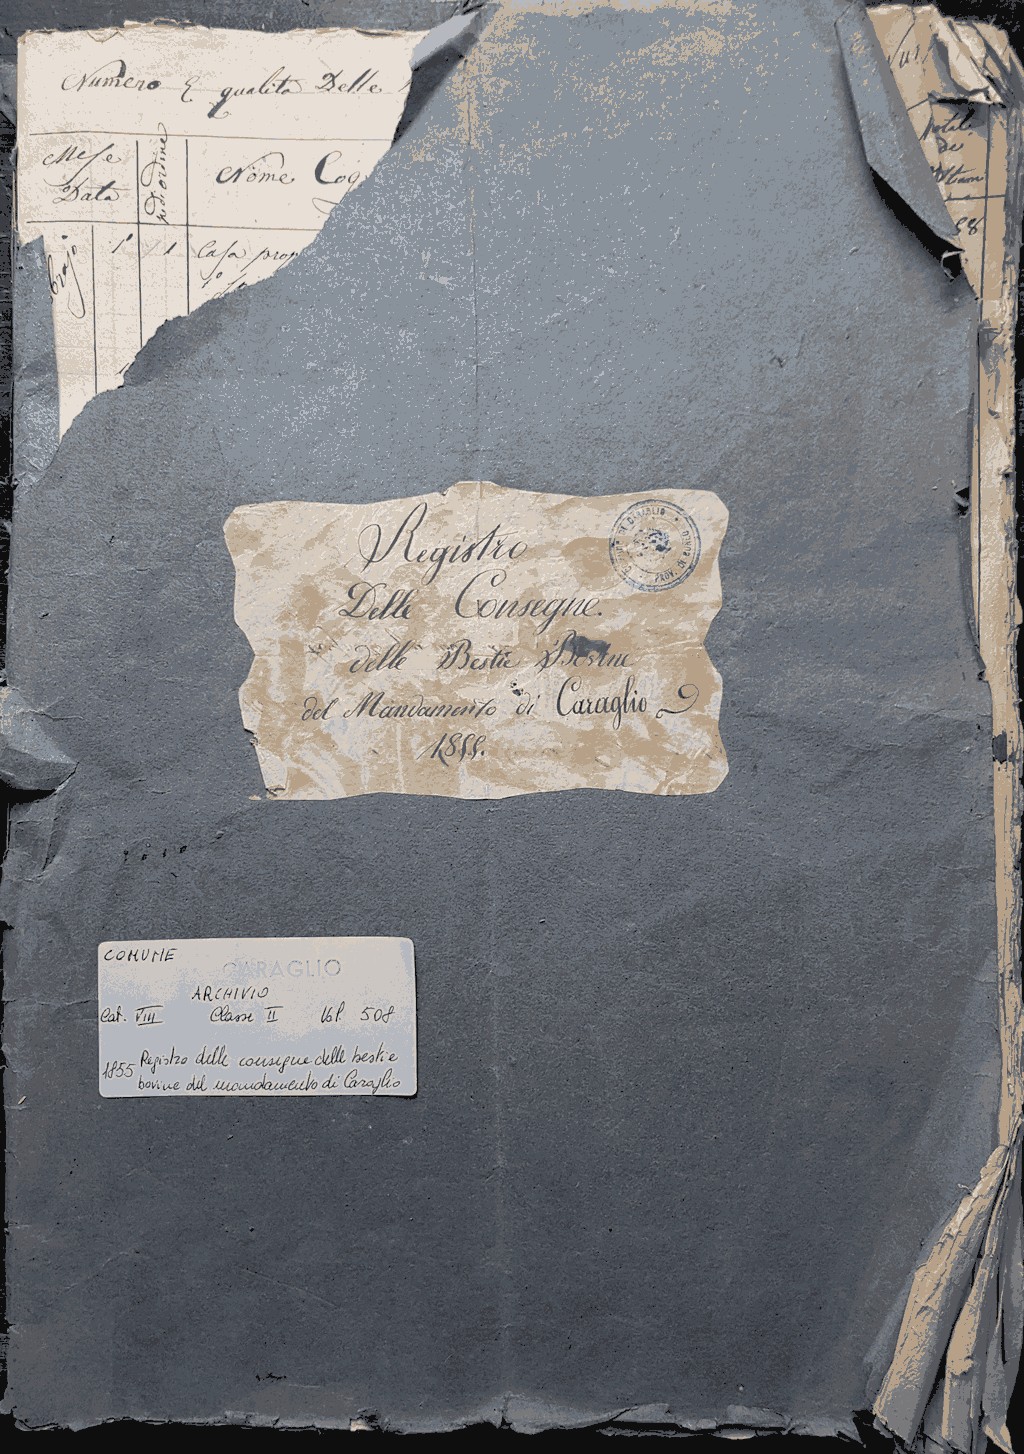 Numero E qualita Delle
Mese
Data
Nome Cog
1° 1 Casa prop
Totale
de
58
Registro
Delle Consegne.
delle Bestie Bovine
del Mandamento di Caraglio
1855.
DI CARAGLIO
PROV. DI CUNEO
COMUNE
CARAGLIO
ARCHIVIO
Cat. VIII Classe II Vol 508
1855 Registro delle consegne delle bestie
bovine del mandamento di Caraglio